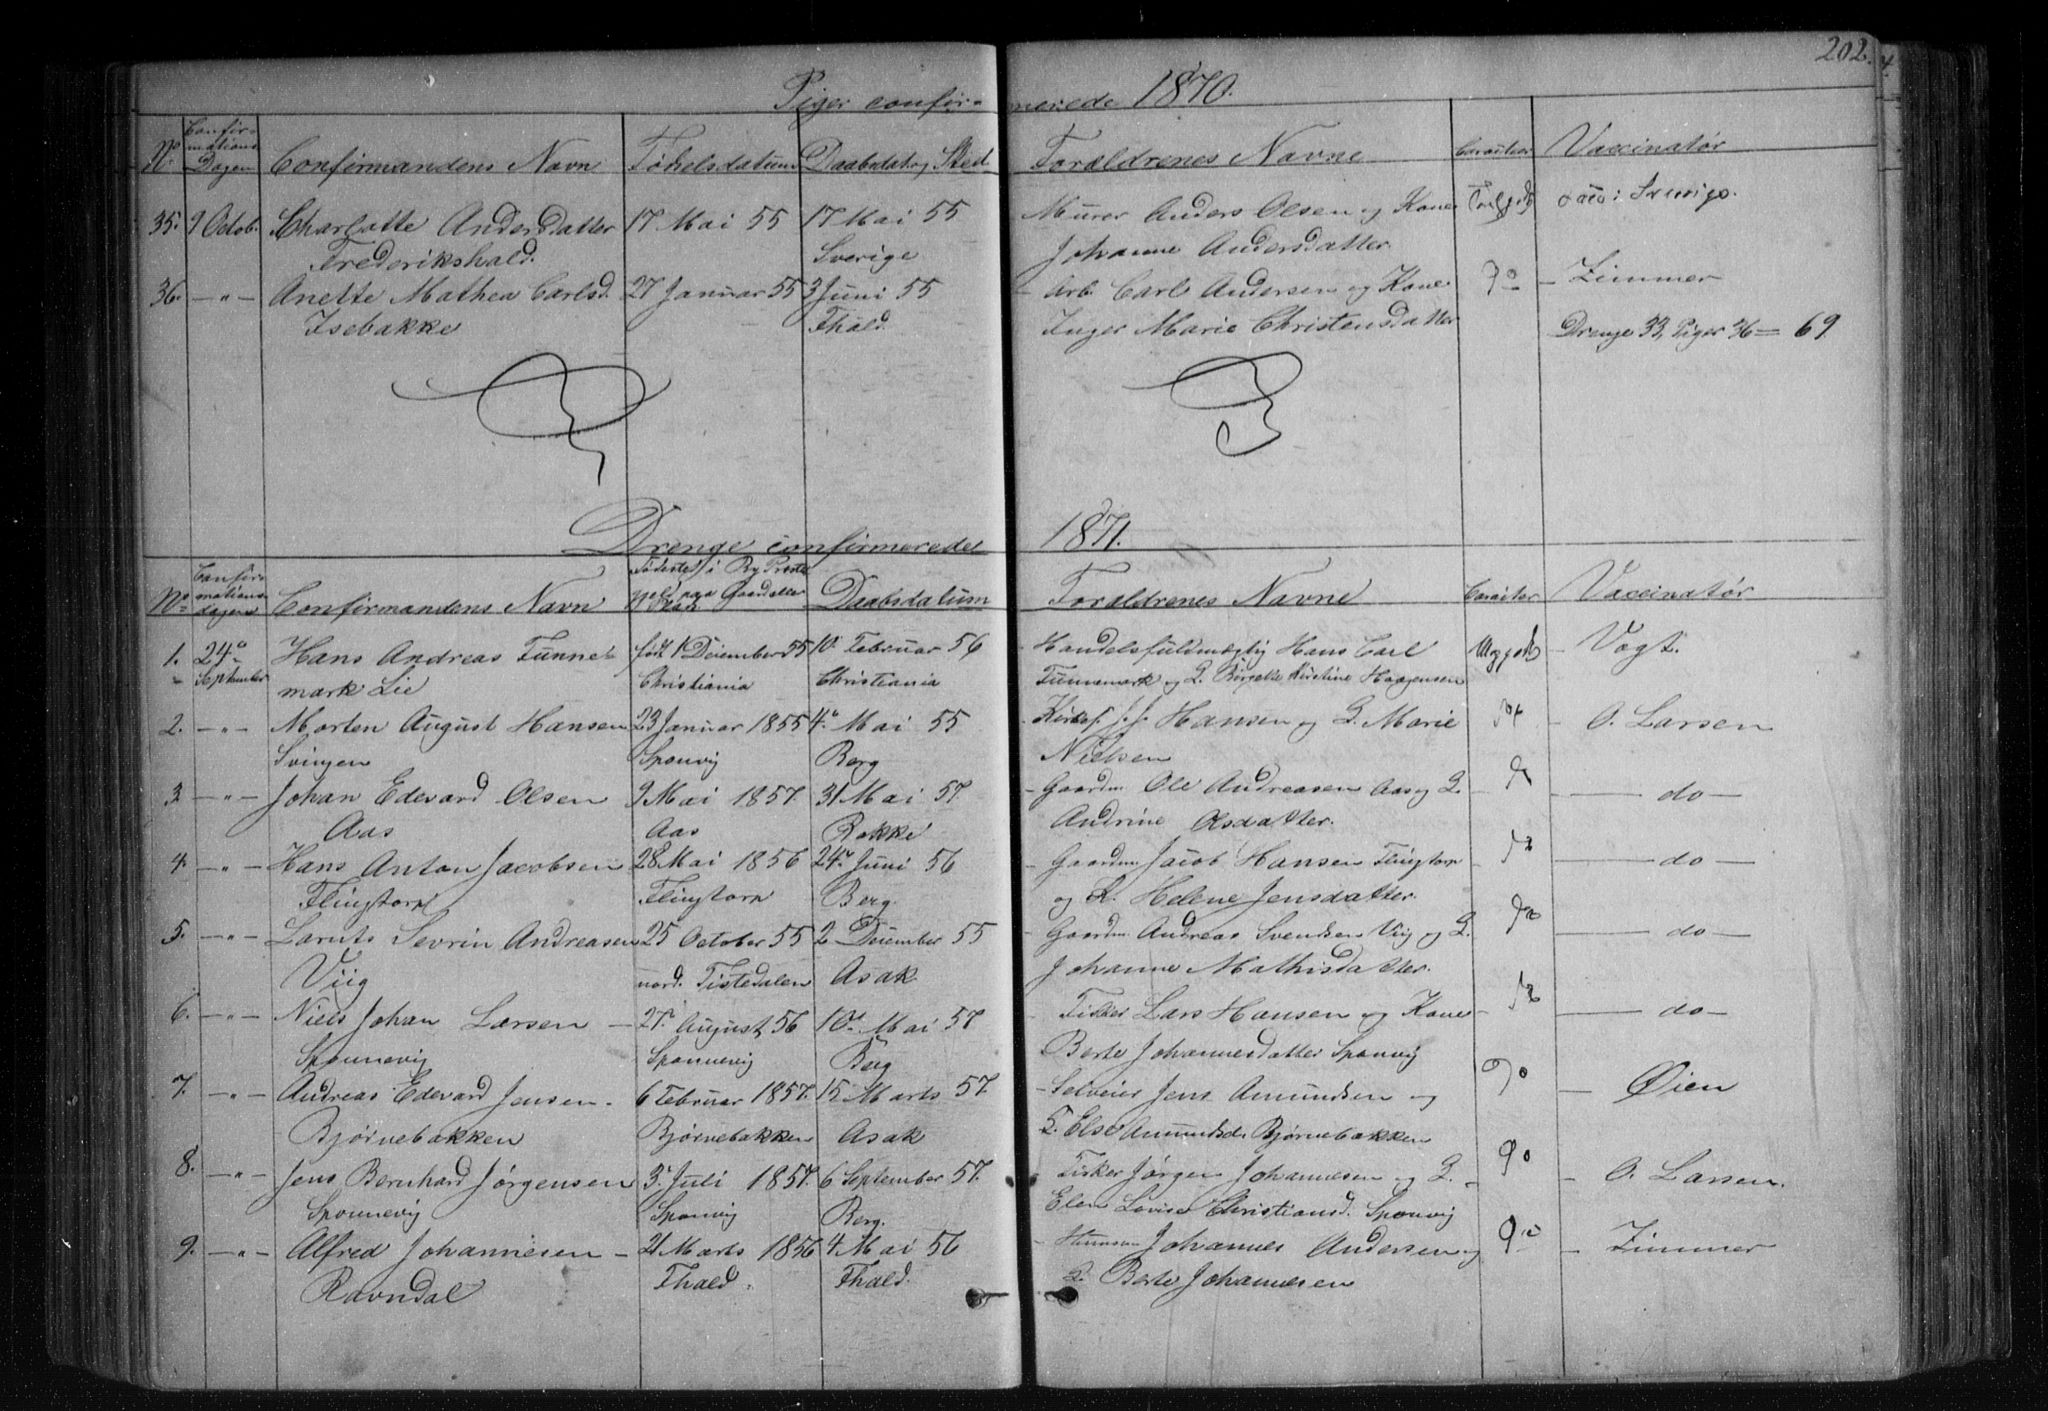 202.
Piger confir- merede 1870.
No. Confirmations Dagen Confirmandens Navn Fødselsdatum Daabsdat og Sted Forældrenes Navne Caracter Vaccinatør
35. 9 Octob. Charlotte Andersdatter 17 Mai 55 17 Mai 55 Murer Anders Olsen og Kone Sverige.
Frederikshald. Sverige Johanne Andersdatter
36. — " — Anette Mathea Carlsd. 27 Januar 55 3 Juni 55 Arb. Carl Andersen og Kone — Zimmer
Isebakke Fhald. Inger Marie Christensdatter Drenge 33, Piger 36 — 69.
Drenge confirmerede 1871.
No. Confirmations dagen Confirmandens Navn Fødested i By Præstegjel paa Gaard eller Plads Daabsdatum Forældrenes Navne Caracter Vaccinatør
1. 24de Hans Andreas Tunne- født 1 December 55 10. Februar 56 Handelsfuldmægtig Hans Carl Megget — Vogt.
" September mark Lie Christiania Christiania Tunnemark og Kirstine Haagensen
2. — " — Morten August Hansen 23 Januar 1855 4. Mai 55 Hansen og Marie — O. Larsen
Svingen Sponvig Berg Nielsen
3. — " — Johan Edevard Olsen 9 Mai 1857. 31 Mai 57 — Gaardm Ole Andreasen Aas og — do —
Aas Aas Rokke Andrine Olsdatter.
4. — " — Hans Anton Jacobsen 28 Mai 1856 24. Juni 56 — Gaardm Jacob Hansen Flingtorp — do —
Flingtorp Flingtorp Berg. og Helene Jensdatter.
5. — " — Sevrin Andreasen 25 October 55 2 December 55 — Gaardm Andreas Svendsen Viig og — do —
Viig nord. Tistedalen Asak Johanne Mathisdatter.
6. — " — Niels Johan Larsen — 27. August 56 10. Mai 57 Fisker Lars Hansen og Kone — do —
Sponnevig Sponnevig Berg Berte Johannesdatter Sponvig
7. — " — Andreas Edevard Jensen — 6 Februar 1857. 15 Marts 57. — Selveier Jens Amundsen og — Øien
Bjørnebakken Bjørnebakken Asak Else Amundsd. Bjørnebakken
8. — " — Jens Bernhard Jørgensen 3. Juli 1857. 6 September 57. Fisker Jørgen Johannesen og — O. Larsen.
Sponnevig Sponvig Berg. Elen Lovise Christiansd. Sponvig
9. — " — Alfred Johannesen — 21 Marts 1856 4 Mai 56 Johannes Andersen og — Zimmer
Ravndal Fhald. Fhald. Berte Johannesen